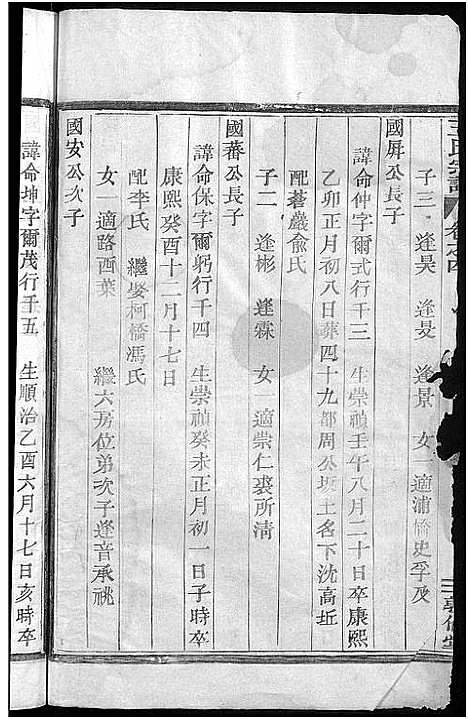 王氏宗譜 卷之四
子三 逢昊 逢旻 逢景 女一適浦 史孚及
國屏公長子
諱命仲字爾式行千三 生崇禎壬午八月二十日卒康熙
乙卯正月初八日葬四十九都周公坂土名下沈高坵
配蒼巖俞氏
子二 逢彬 逢霖 女一適崇仁裘所淸
國蕃公長子
諱命保字爾躬行千四 生崇禎癸未正月初一日子時卒
康熙癸酉十二月十七日
配李氏 繼娶柯橋馮氏
女一適路西葉 繼六房位弟次子逢音承祧
國安公次子
諱命坤字爾茂行千五 生順治乙酉六月十七日亥時卒